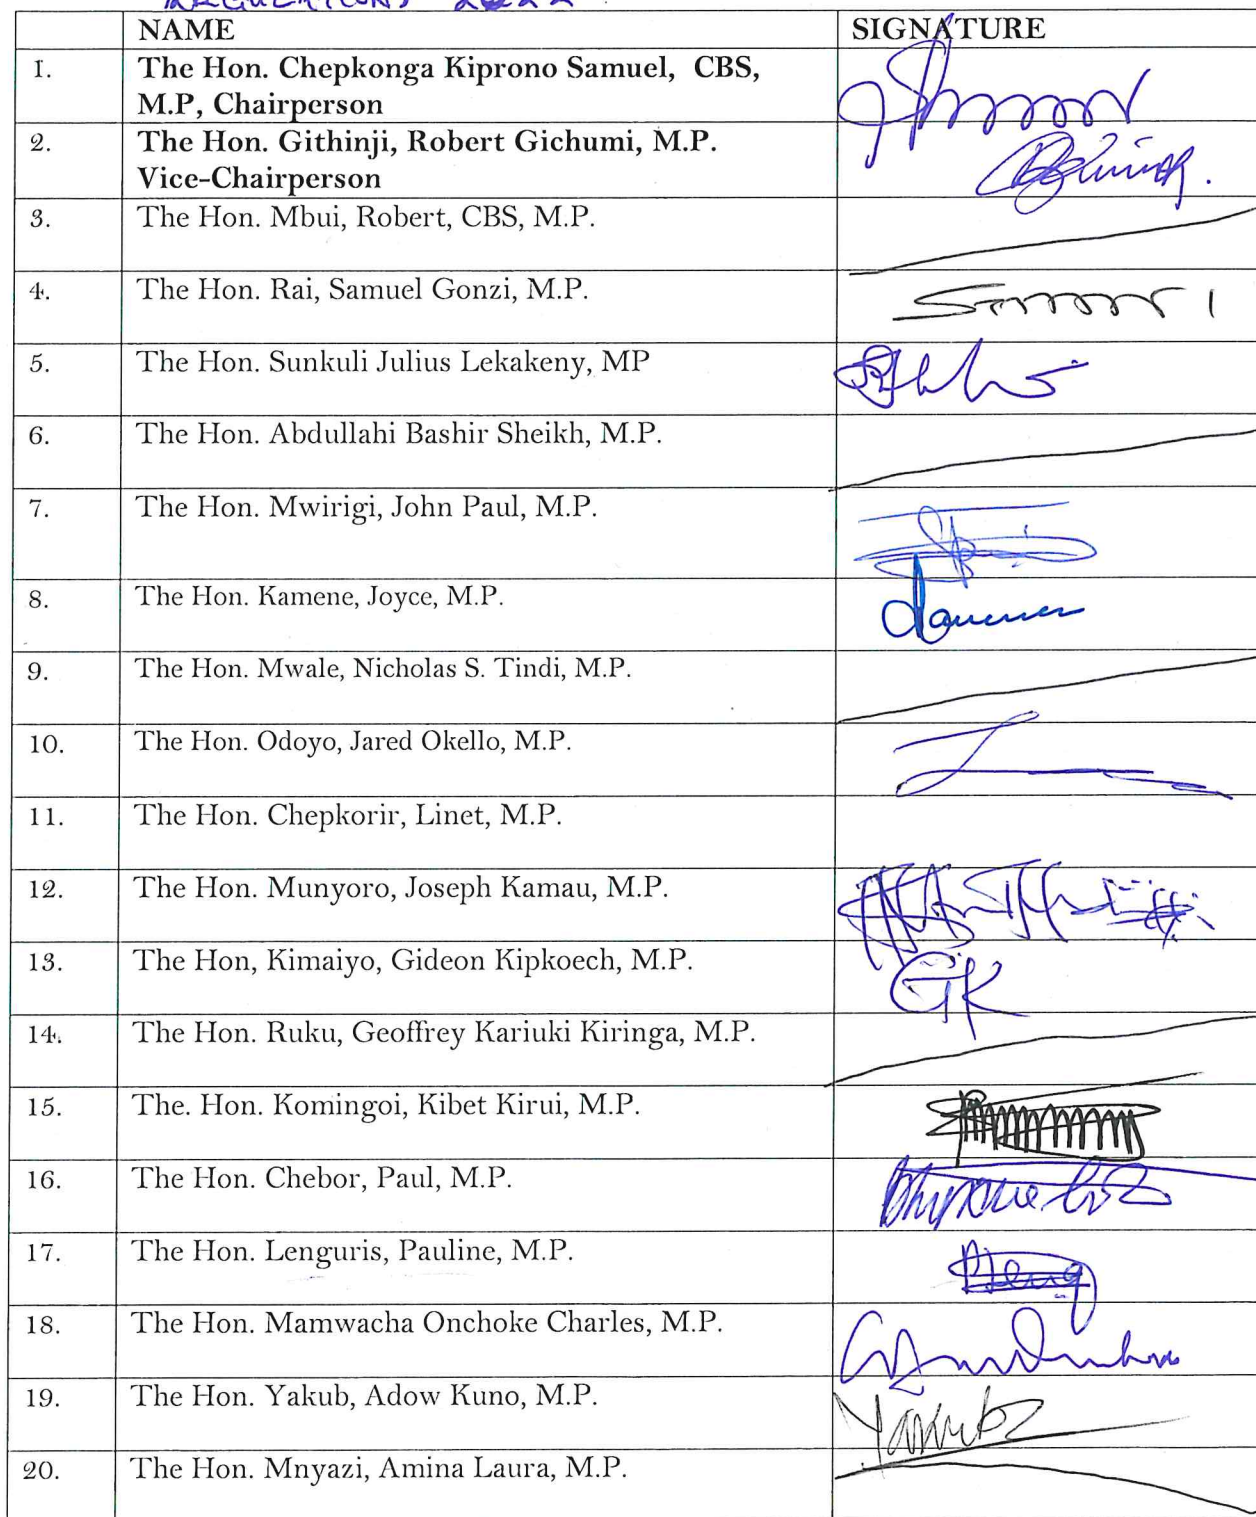 REGULATIONS 2022
NAME SIGNATURE
1. The Hon. Chepkonga Kiprono Samuel, CBS,
M.P, Chairperson
2. The Hon. Githinji, Robert Gichumi, M.P.
Vice-Chairperson
3. The Hon. Mbui, Robert, CBS, M.P.
4. The Hon. Rai, Samuel Gonzi, M.P.
5. The Hon. Sunkuli Julius Lekakeny, MP
6. The Hon. Abdullahi Bashir Sheikh, M.P.
7. The Hon. Mwirigi, John Paul, M.P.
8. The Hon. Kamene, Joyce, M.P.
9. The Hon. Mwale, Nicholas S. Tindi, M.P.
10. The Hon. Odoyo, Jared Okello, M.P.
11. The Hon. Chepkorir, Linet, M.P.
12. The Hon. Munyoro, Joseph Kamau, M.P.
13. The Hon, Kimaiyo, Gideon Kipkoech, M.P. GK
14. The Hon. Ruku, Geoffrey Kariuki Kiringa, M.P.
15. The. Hon. Komingoi, Kibet Kirui, M.P.
16. The Hon. Chebor, Paul, M.P.
17. The Hon. Lenguris, Pauline, M.P.
18. The Hon. Mamwacha Onchoke Charles, M.P.
19. The Hon. Yakub, Adow Kuno, M.P.
20. The Hon. Mnyazi, Amina Laura, M.P.